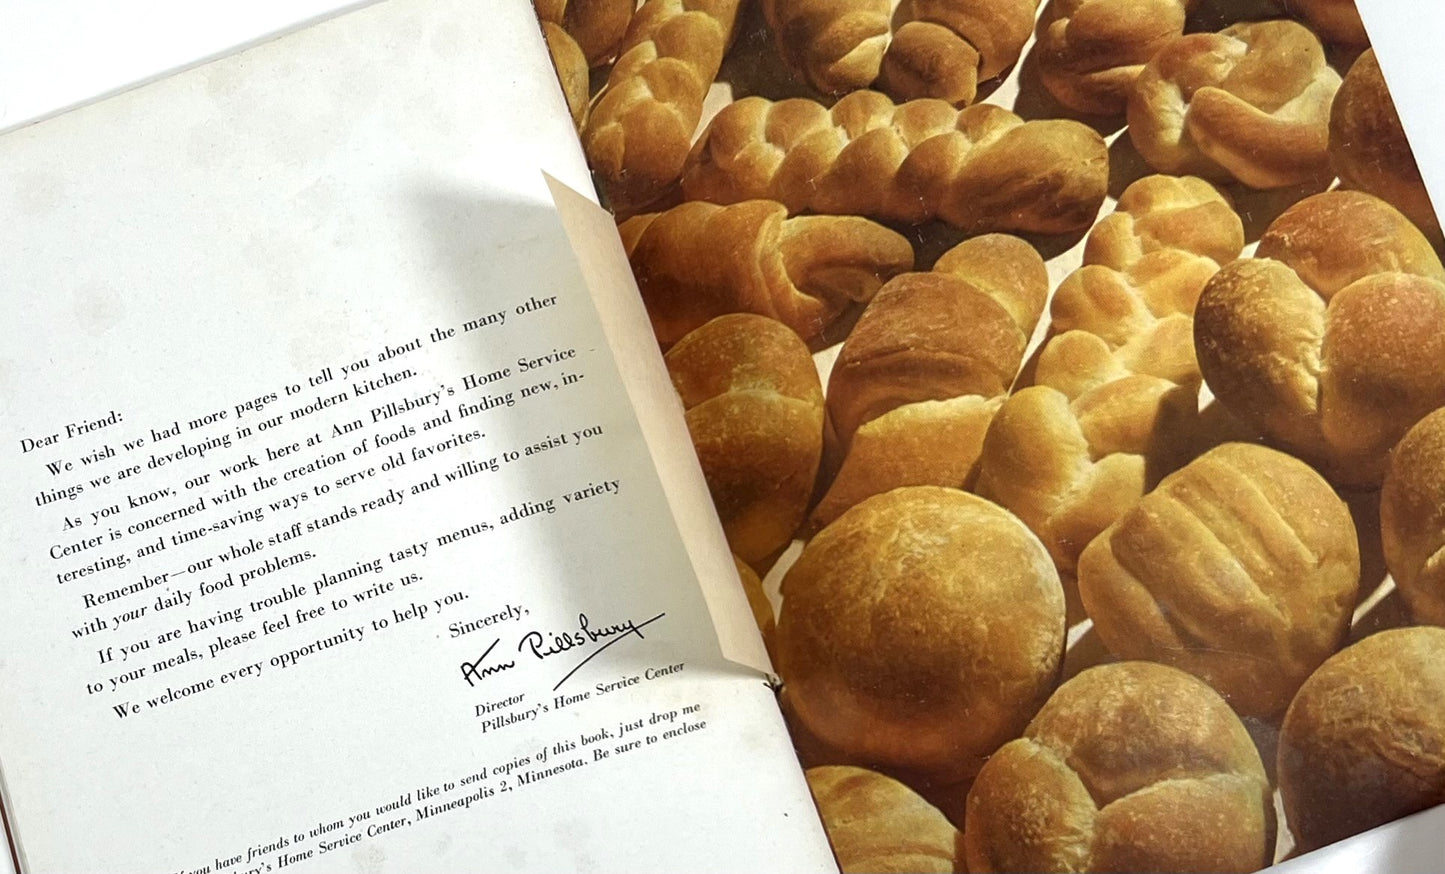 Dear Friend:
We wish we had more pages to tell you about the many other
things we are developing in our modern kitchen.
As you know, our work here at Ann Pillsbury's Home Service
Center is concerned with the creation of foods and finding new, in-
teresting, and time-saving ways to serve old favorites.
Remember—our whole staff stands ready and willing to assist you
with your daily food problems.
If you are having trouble planning tasty menus, adding variety
to your meals, please feel free to write us.
We welcome every opportunity to help you.
Sincerely,
Ann Pillsbury
Director
Pillsbury's Home Service Center
you have friends to whom you would like to send copies of this book, just drop me
Home Service Center, Minneapolis 2, Minnesota. Be sure to enclose